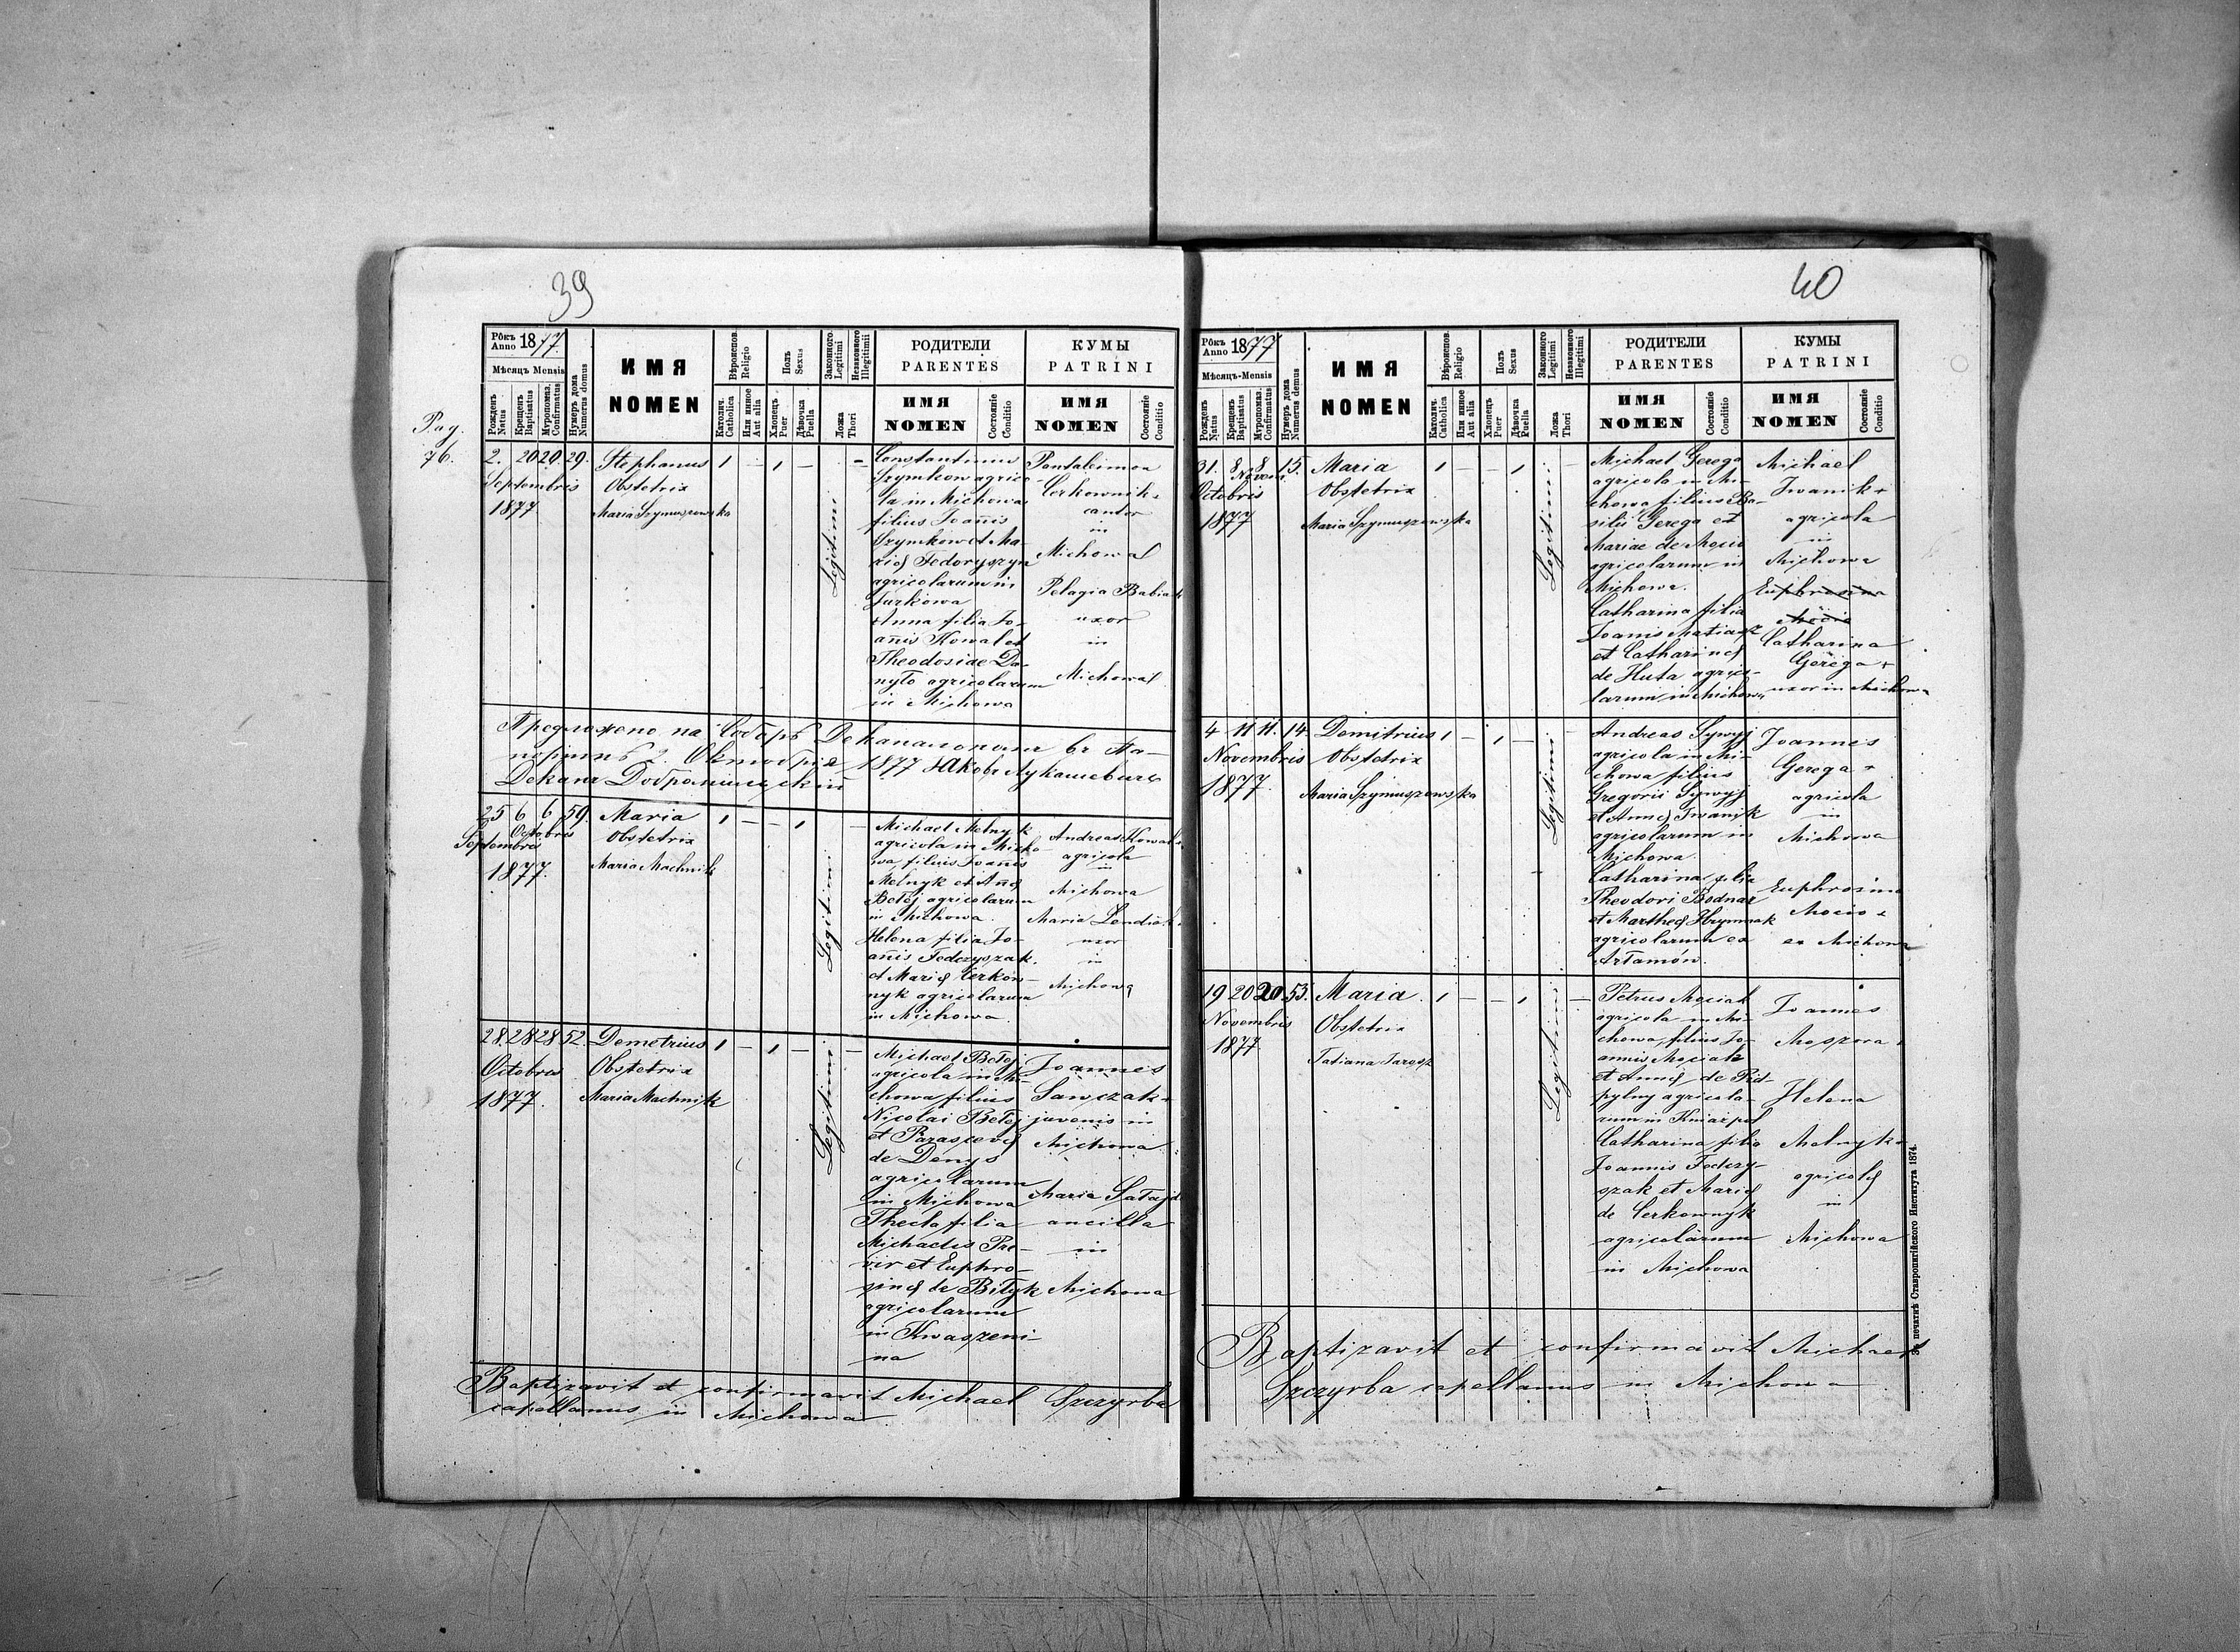 39
Рôкъ Anno 1877
Мѣсяцъ Mensis
Рожденъ Natus
Крещенъ Baptisatus
Мѵропомаз. Confirmatus
Нумеръ дома Numerus domus
ИМЯ
NOMEN
Вѣроисповѣд. Religio
Католич. Catholica
Или иное Aut alia
Полъ Sexus
Хлопецъ Puer
Дѣвочка Puella
Законного Legitimi
Незаконного Illegitimi
Ложа Thori
РОДИТЕЛИ
PARENTES
ИМЯ
NOMEN
Состояніе Conditio
КУМЫ
PATRINI
ИМЯ
NOMEN
Состояніе Conditio
Pag.
76.
2. 20 20. 29.
Septembris
1877
Stephanus 1 – 1 – –
Obstetrix
Maria Szymuszowska
Legitimi
Constantinus
Szymkow agrico-
la in Michowa
filius Joañis
Szymkow et Ma-
rię Fedoryszyn
agricolarum in
Jurkowa
Anna filia Jo-
añis Kowal et
Theodosiae Da-
nyło agricolarum
in Michowa
Pantaleimon
Cerkownik
cantor
in
Michowa
Pelagia Babiak
uxor
in
Michowa
Предложено на Соборѣ Деканальномъ
2. Октобрія 1877 Яковъ Лукашевичъ
Деканъ Добромильскій
25 6 6 59.
Octobris
Septembris
1877.
Maria 1 – – 1 –
Obstetrix
Maria Machnik
Legitimi
Michael Melnyk
agricola in Micho
wa filius Joañis
Melnyk et Anę
Bełej agricolarum
in Michowa.
Helena filia Jo-
añis Fedczyszak
et Marię Cerkow-
nyk agricolarum
in Michowa
Andreas Kowal
agricola
in
Michowa
Maria Lendiak
uxor
in
Michowa
28. 28 28 52.
Octobris
1877.
Demetrius 1 – 1 – –
Obstetrix
Maria Machnik
Legitimi
Michael Bełej
agricola in Mi-
chowa filius
Nicolai Bełej
et Parascevę
de Denys
agricolarum
in Michowa
Thecla filia
Michaelis Pre-
vir et Euphro-
sinę de Biłyk
agricolarum
in Kwaszeni-
na
Joannes
Sawczak
juvenis in
Michowa
Maria Sałajd
ancilla
in
Michowa
Baptizavit et confirmavit Michael Szczyrba
capellanus in Michowa
40
Рôкъ Anno 1877
Мѣсяцъ-Mensis
Рожденъ Natus
Крещенъ Baptisatus
Мѵропомаз. Confirmatus
Нумеръ дома Numerus domus
ИМЯ
NOMEN
Вѣроисповѣд. Religio
Католич. Catholica
Или иное Aut alia
Полъ Sexus
Хлопецъ Puer
Дѣвочка Puella
Законного Legitimi
Незаконного Illegitimi
Ложа Thori
РОДИТЕЛИ
PARENTES
ИМЯ
NOMEN
Состояніе Conditio
КУМЫ
PATRINI
ИМЯ
NOMEN
Состояніе Conditio
31. 8 8 15.
Novem.
Octobris
1877
Maria 1 – – 1 –
Obstetrix
Maria Szymuszowska
Legitimi
Michael Gerega
agricola in Mi-
chowa filius Ba-
silii Gerega et
Mariae de Mocio
agricolarum in
Michowa.
Catharina filia
Joanis Matiasz
et Catharinę
de Huta agrico-
larum in Michowa
Michael
Iwanik +
agricola
in
Michowa
Euphrosina
Mocio
Catharina
Gerega +
uxor in Michowa
4 11 11. 14.
Novembris
1877.
Demitrius 1 – 1 – –
Obstetrix
Maria Szymuszowska
Legitimi
Andreas Sywyj
agricola in Mi-
chowa filius
Gregorii Sywyj
et Annę Iwanyk
agricolarum in
Michowa.
Catharina filia
Theodori Bodnar
et Marthę Hrymniak
agricolarum ex
Artamów.
Joannes
Gerega +
agricola
in
Michowa
Euphrosina
Mocio +
ex Michowa
19 20 20 53.
Novembris
1877
Maria. 1 – – 1 –
Obstetrix
Tatiana Tarosz
Legitimi
Petrus Mociak
agricola in Mi-
chowa, filius Jo-
annis Mociak
et Annę de Pid-
pylny agricola-
rum in Kniażpol
Catharina filia
Joannis Fedczy-
szak et Marię
de Cerkownyk
agricolarum
in Michowa
Joannes
Moszora
Helena
Melnyk
agricolę
in
Michowa
Baptizavit et confirmavit Michael
Szczyrba capellanus in Michowa
Зъ печатнѣ Ставропигійского Института 1874.